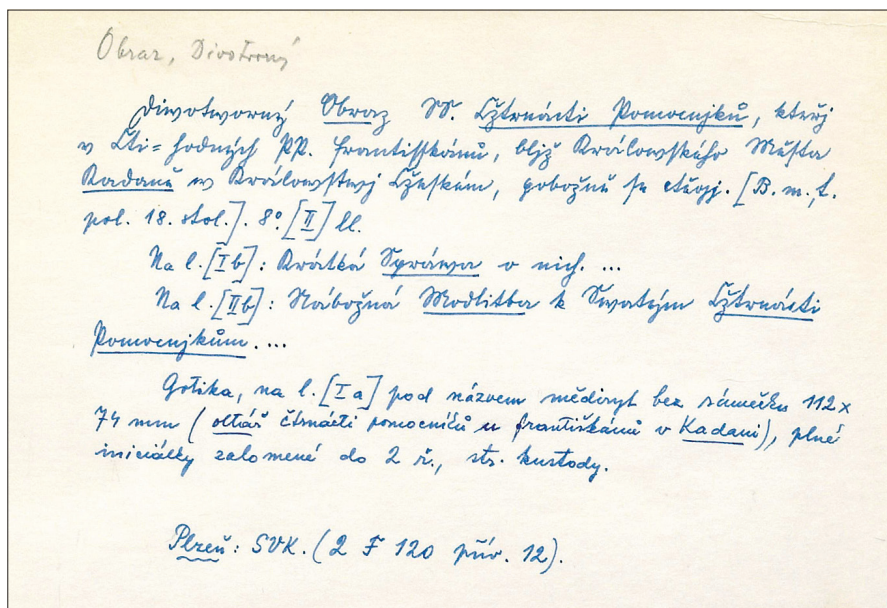 Obraz, Divotvorný
Diwotworný Obraz SS. Cžtrnácti Pomocnjků, kteřj
v Cti=hodných PP. Frantisskánů, bljž Králowského Města
Kadaně w Králowstwj Cžeském, pobožně se ctěgj. [B. m., t.
pol. 18. stol.]. 8° [II] ll.
Na l. [Ib]: Krátká Spráwa o nich. ...
Na l. [IIb]: Nábožná Modlitba k Swatým Cžtrnácti
Pomocnjkům. ...
Gotika, na l. [Ia] pod názvem mědiryt bez rámečku 112×
74 mm (oltář čtrnácti pomocníků u františkánů v Kadani), plné
iniciálky zalomené do 2 ř., str. kustody.
Plzeň: SVK. (2 F 120 přív. 12).